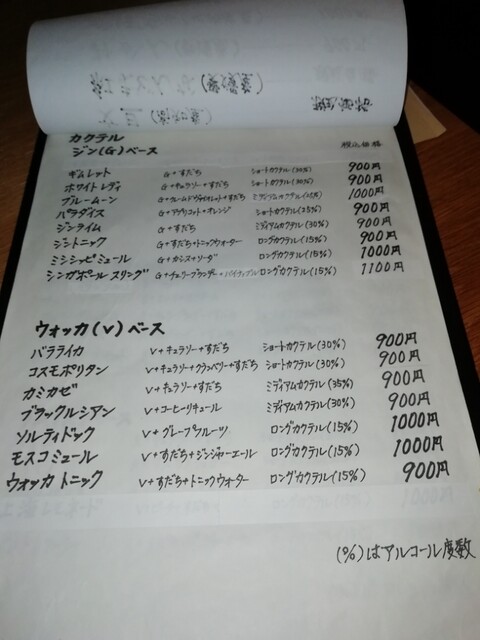 カクテル
ジン(G)ベース 税込価格
ギムレット G+すだち ショートカクテル(30%) 900円
ホワイトレディ G+キュラソー+すだち ショートカクテル(30%) 900円
ブルームーン すだち 1000円
パラダイス G+アプリコット+オレンジ ショートカクテル(25%) 900円
ジンライム G+すだち ミディアムカクテル(30%) 900円
ジントニック G+すだち+トニックウォーター ロングカクテル(15%) 900円
ミシシッピミュール G+カシス+ソーダ ロングカクテル(15%) 1000円
シンガポールスリング G+チェリーブランデー+パイナップル ロングカクテル(15%) 1100円
ウォッカ(V)ベース
バラライカ V+キュラソー+すだち ショートカクテル(30%) 900円
コスモポリタン V+キュラソー+クランベリー+すだち ショートカクテル(30%) 900円
カミカゼ V+キュラソー+すだち ミディアムカクテル(35%) 900円
ブラックルシアン V+コーヒーリキュール ミディアムカクテル(30%) 900円
ソルティドック V+グレープフルーツ ロングカクテル(15%) 1000円
モスコミュール V+すだち+ジンジャーエール ロングカクテル(15%) 1000円
ウォッカトニック V+すだち+トニックウォーター ロングカクテル(15%) 900円
(%)はアルコール度数